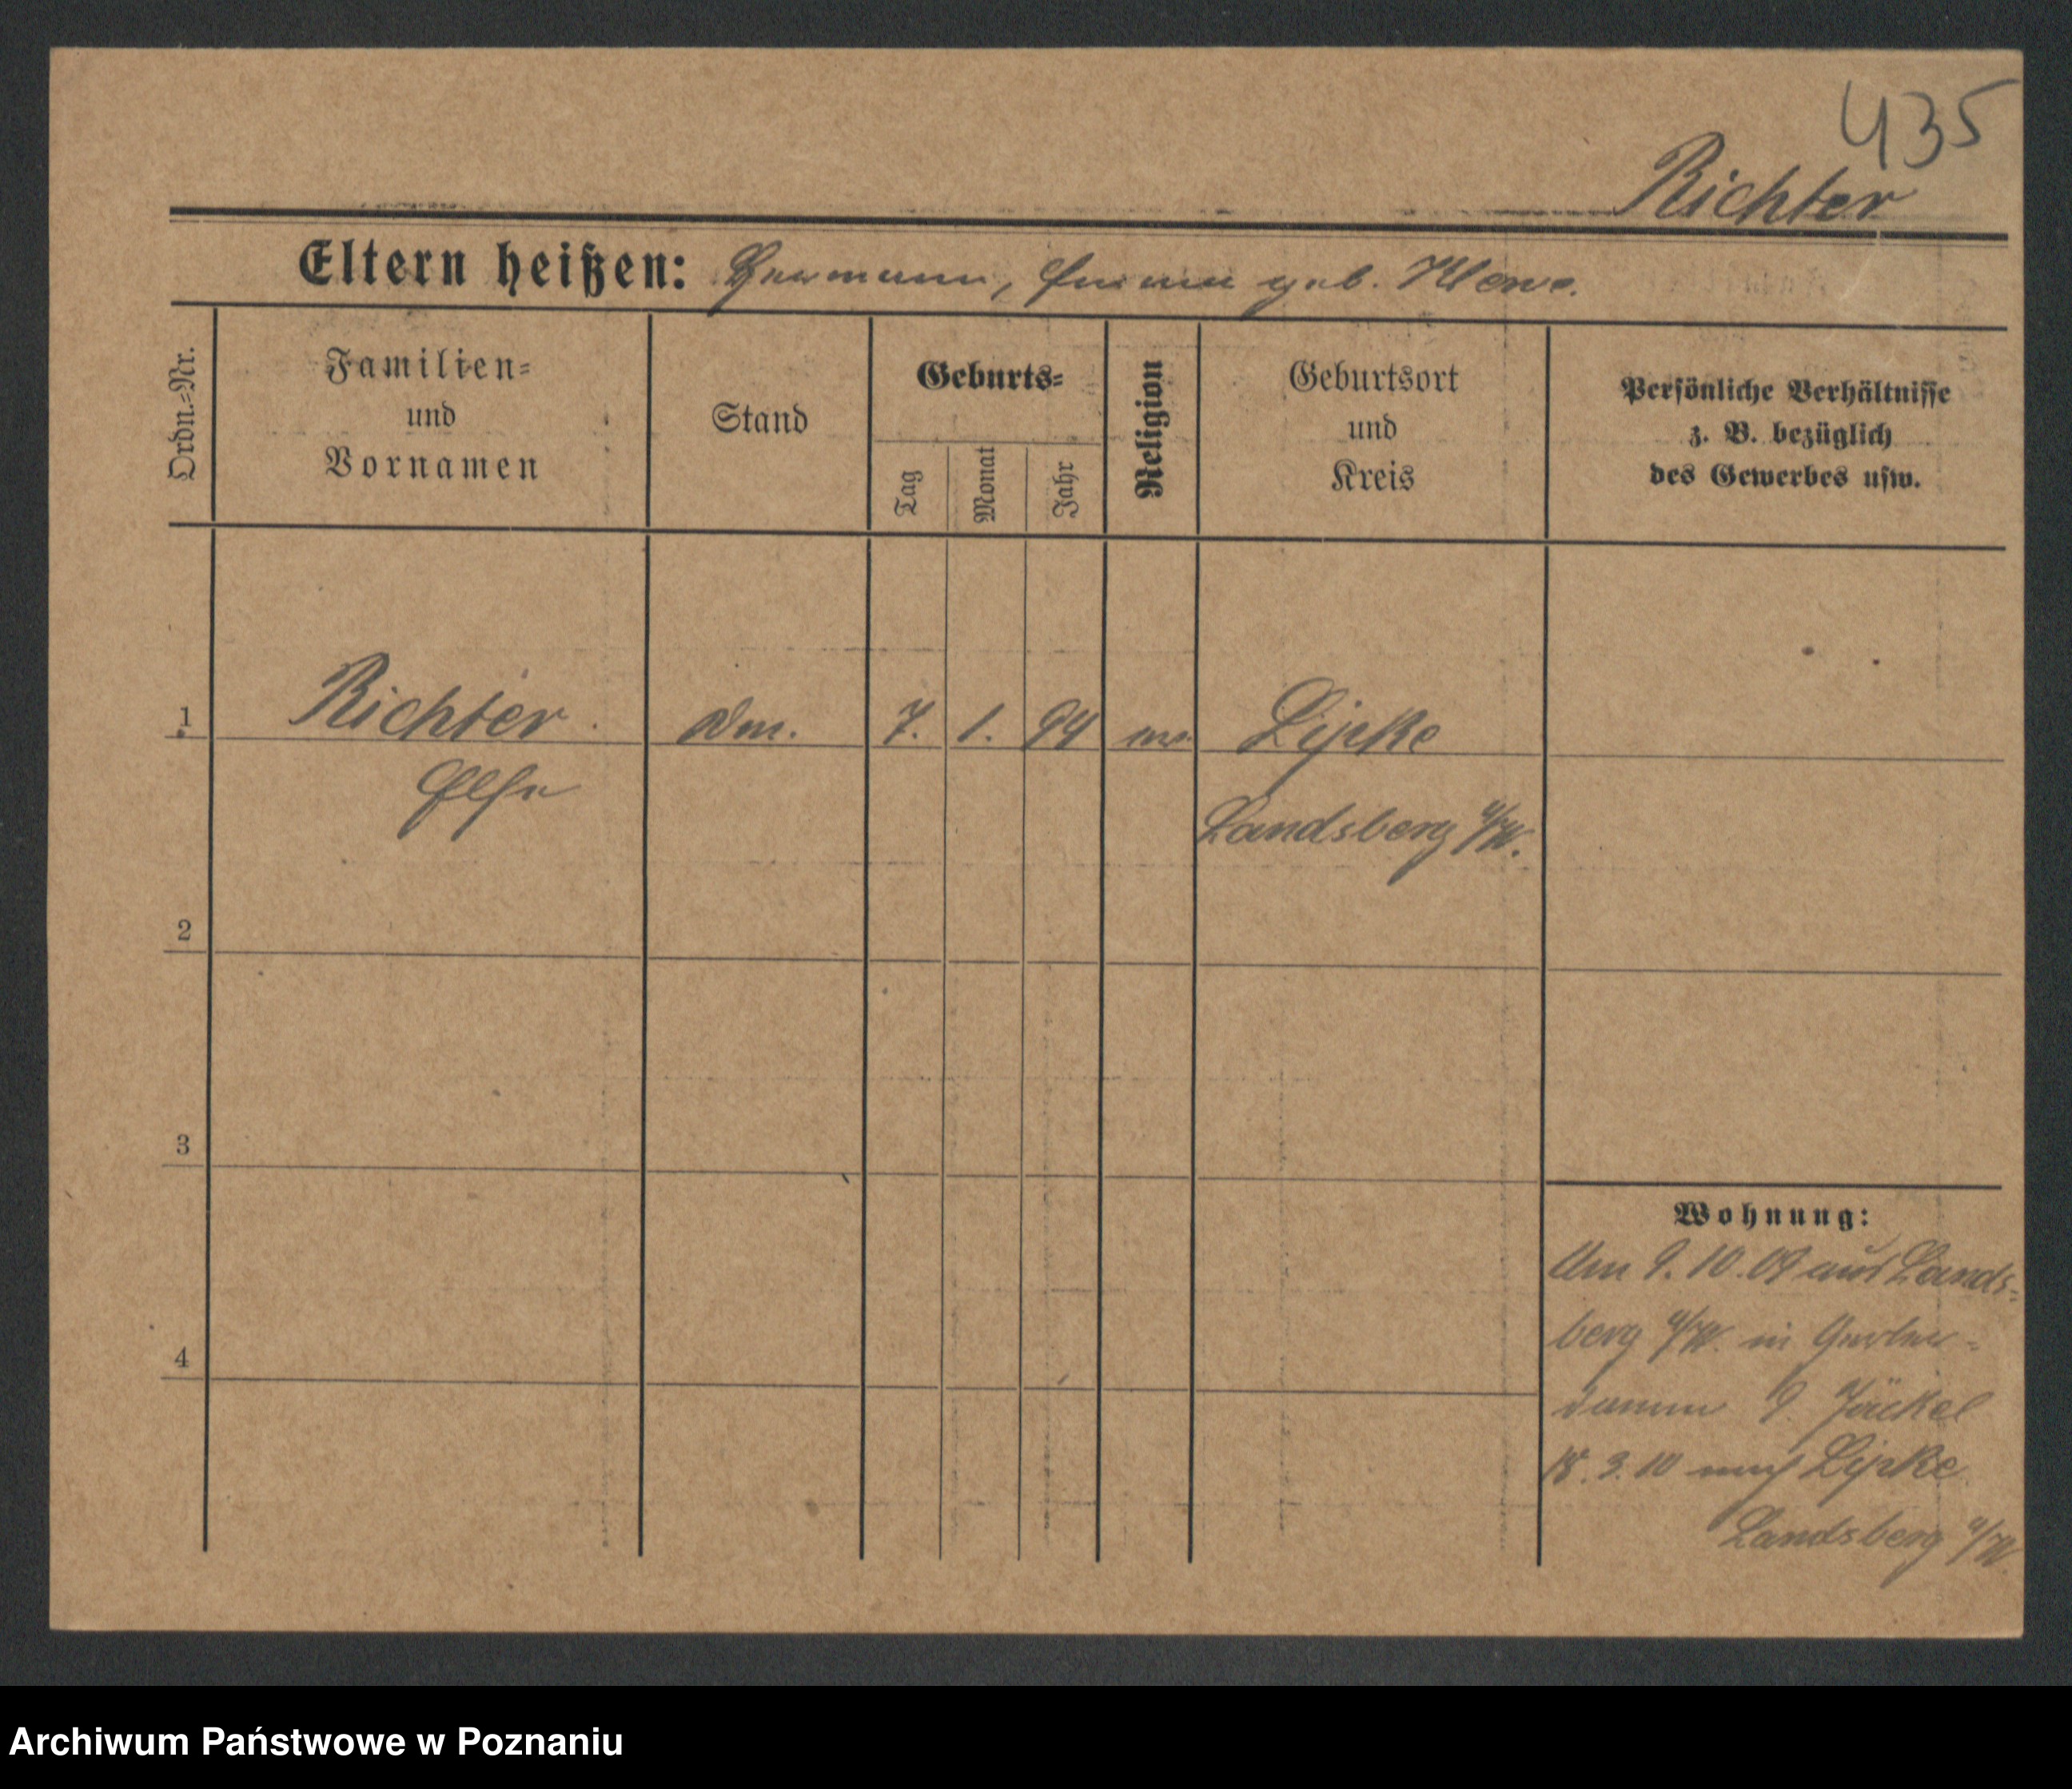 435
Richter
Eltern heißen: Hermann, Emma geb.
Ordn.=Nr.
Familien=
und
Vornamen
Stand
Geburts=
Tag
Monat
Jahr
Religion
Geburtsort
und
Kreis
Persönliche Verhältnisse
z. B. bezüglich
des Gewerbes usw.
1 Richter 7. 1. 94 Lipke
Else
Landsberg a/W.
2
3
4
Wohnung:
Am 9. 10. 09 aus Lands-
berg a/W. in Gerber-
damm 9. Jäckel
18. 3. 10 nach Lipke
Landsberg a/W.
Archiwum Państwowe w Poznaniu